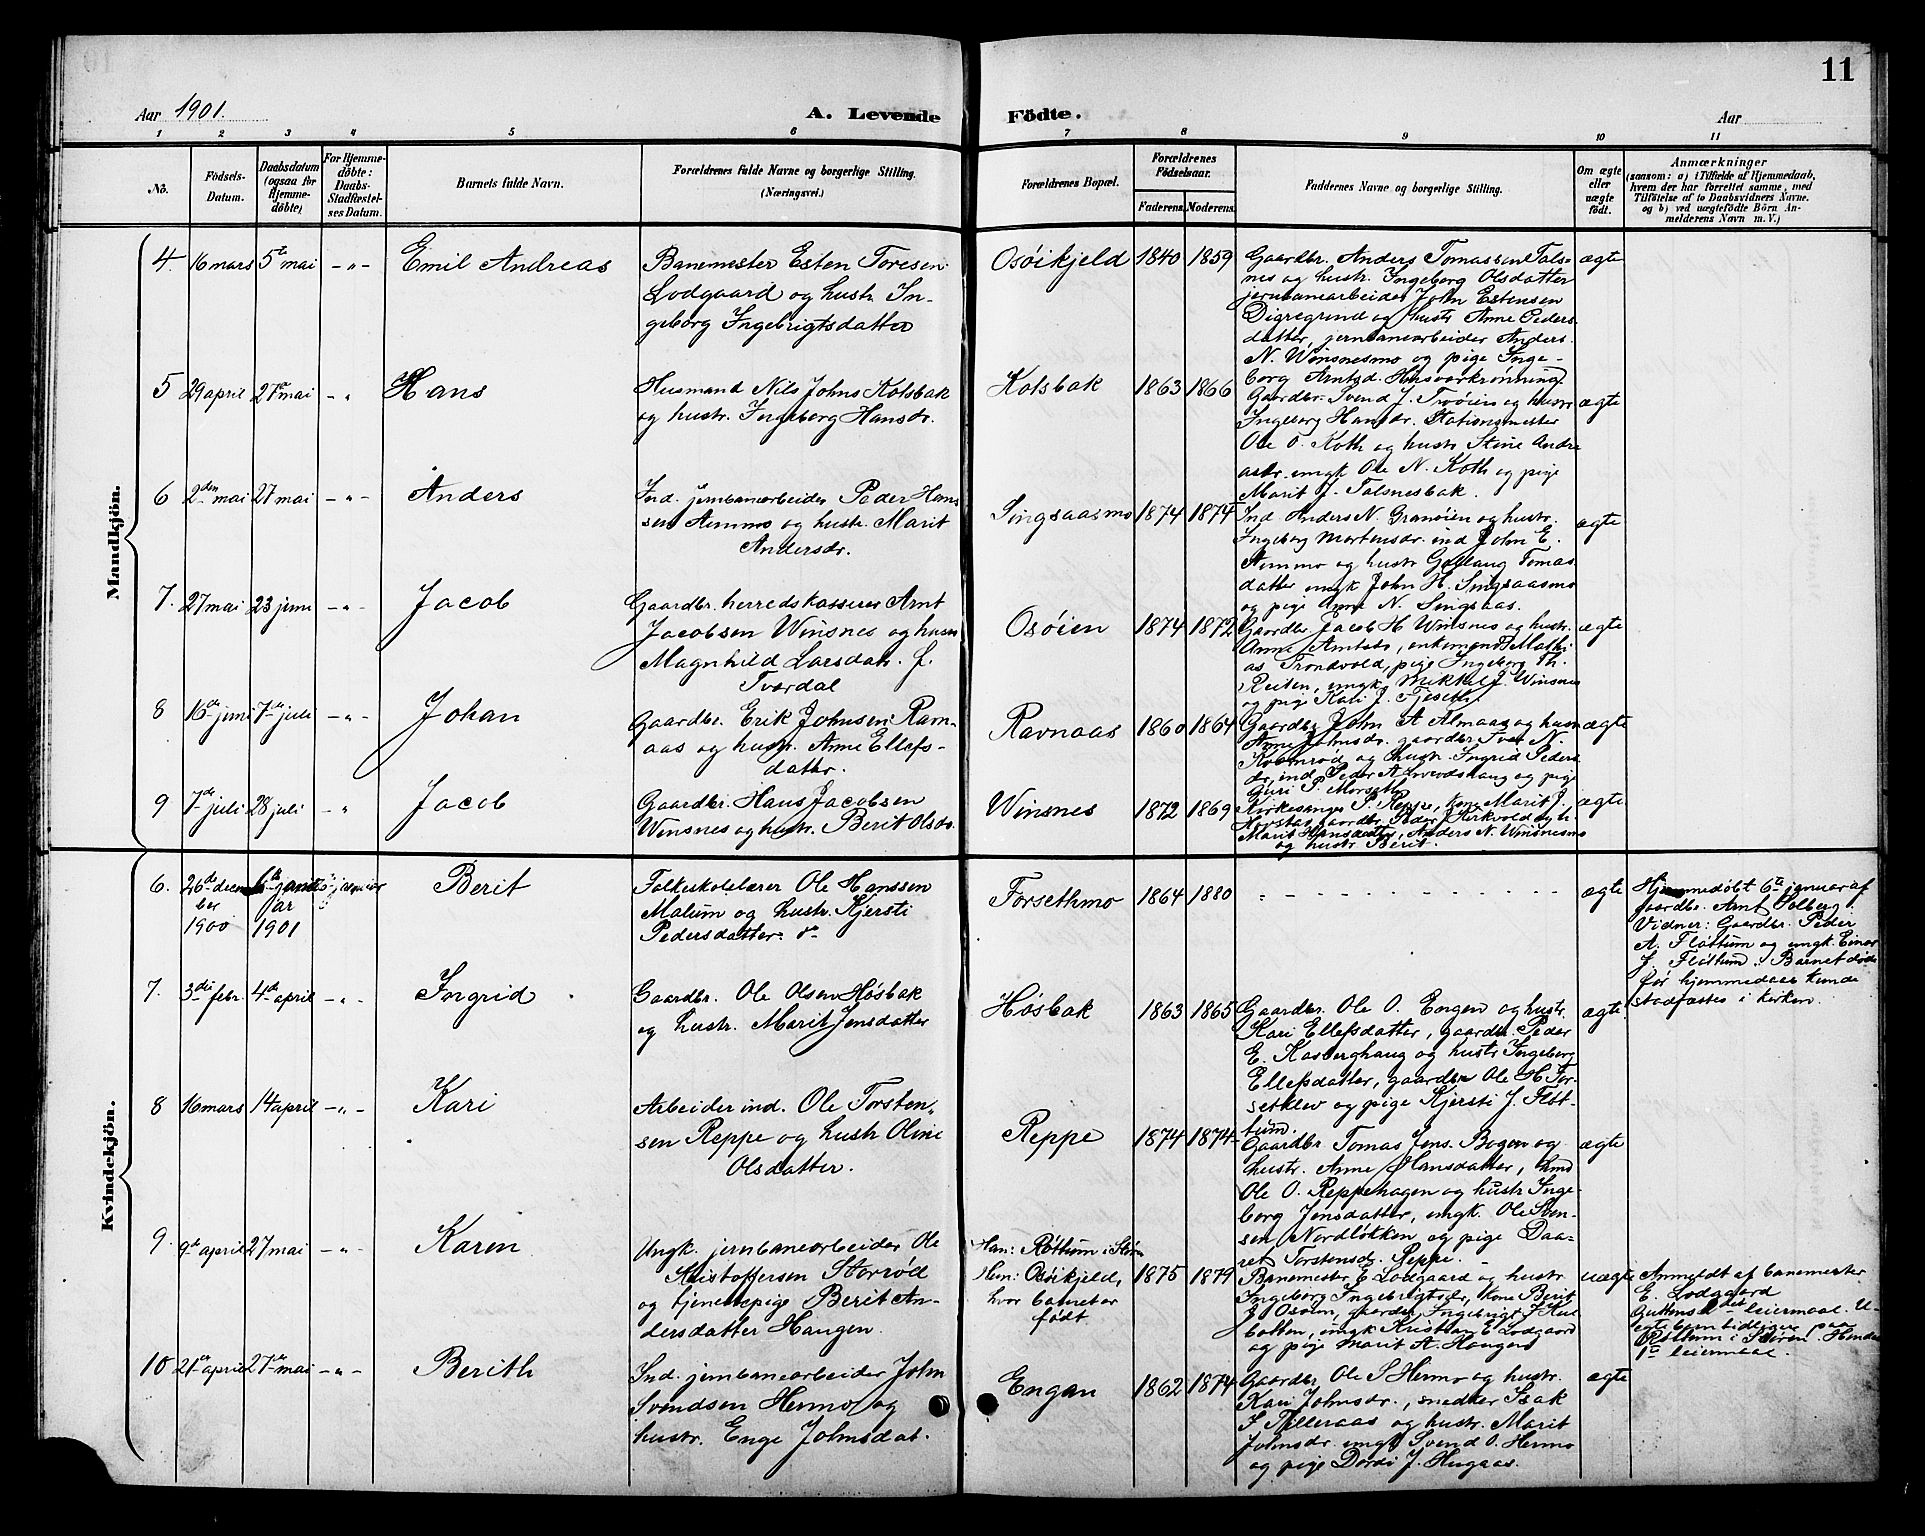 11
Aar 1901.
A. Levende Födte.
Aar
1 2 3 4 5 6 7 8 9 10 11
No.
Födsels-
Datum.
Daabsdatum
(ogsaa for
Hjemme-
döbte)
For Hjemme-
döbte:
Daabs-
Stadfæstel-
ses Datum.
Barnets fulde Navn.
Forældrenes fulde Navne og borgerlige Stilling.
(Næringsvei.)
Forældrenes Bopæl.
Forældrenes
Födselsaar.
Faderens. Moderens.
Faddernes Navne og borgerlige Stilling.
Om ægte
eller
uægte
födt.
Anmærkninger
(saasom: a) i Tilfælde af Hjemmedaab,
hvem der har forrettet samme, med
Tilföielse af to Daabsvidners Navne.
og b) ved uægtefödte Börn An-
melderens Navn m. V.)
Mandkjön.
4. 16 mars 5te mai -"- Emil Andreas
Banemester Esten Toresen
Lodgaard og hustr. In-
geborg Ingebrigtsdatter
Osöikjeld 1840 1859
Gaardbr. Anders Tomassen Tals-
nes og hustr. Ingeborg Olsdatter
jernbanearbeider John Estensen
Digregrind og hustr Anne Peders-
datter, jernbanearbeider Anders
N. Winsnesmo og pige Inge-
borg Arntsd.
ægte
5 29 april 27de mai -"- Hans
Husmand Nils Johns Kotsbak
og hustr. Ingeborg Hansdr.
Kotsbak 1863 1866
Gaardbr. Svend J. og hustr
Ingeborg Hansdr. Stationsmester
Ole O. Koth og hustr Stine Andre
asdr. ungk Ole N. Koth og pige
Marit J. Talsnesbak.
ægte
6 2den mai 27 mai -"- Anders
Ind. jernbanearbeider Peder Hans
sen Aemmo og hustr. Marit
Andersdr.
Singsaasmo 1874 1874
Ind Anders N. Granöien og hustr.
Ingeborg Mortensdr. ind John E.
Aemmo og hustr Tomas
datter ungk John H. Singsaasmo
og pige Anne N. Singsaas.
ægte
7. 27 mai 23 juni -"- Jacob
Gaardbr. herredskasserer Arnt
Jacobsen Winsnes og hustr
Magnhild Larsdatr. f.
Tverdal
Osöien 1874 1872
Gaardbr Jacob H Winsnes og hustr.
Anne Arntsdr, enkemand Mathi
as Trondvold, pige Ingeborg Th.
Reiten, ungk Mikkel J. Winsnes
og pig Kari J. Fjeseth.
ægte
8 16de juni 7de juli -"- Johan
Gaardbr. Erik Johnsen Ravn-
aas og hustr. Anne Ellefs-
datter.
Ravnaas 1860 1864
Gaardbr John A Almaas og hustr
Anne Johnsdr. gaardbr Iver N.
og hustr Ingrid Peders
dr, ind Peder A og pige
Guri P. Morseth
ægte
9 7de juli 28 juli -"- Jacob
Gaardbr. Hans Jacobsen
Winsnes og hustr. Berit Olsdr.
Winsnes 1872 1869
Kirkesanger P. Reppe, kone Marit J.
Hovstad, gaardbr. Peder Kirkvold og h.
Marit Hansdatter, Anders N. Winsnesmo
og hustr Berit.
ægte
Kvindekjön.
6. 26de decem
ber
1900
6te janu
ar
1901
Berit
Folkeskolelærer Ole Hanssen
Malum og hustr. Kjersti
Pedersdatter.
Forsethmo 1864 1880
ægte
Hjemmedöbt 6te januar af
gaardbr. Arnt Solberg.
Vidner: Gaardbr. Peder
A. Fløttum og ungk. Einar
J. Fløttum. Barnet døde
før hjemmedaab kunde
stadfæstes i kirken.
7. 3die febr. 4de april -"- Ingrid
Gaardbr. Ole Olsen Høsbak
og hustr. Marit Jensdatter
Høsbak 1863 1865
Gaardbr. Ole O. Engen og hustr.
Kari Ellefsdatter, gaardbr. Peder
E. Kasberghaug og hustr Ingeborg
Ellefsdatter, gaardbr Ole H For-
setklev og pige Kjersti J. Fløt-
tum.
ægte
8 16 mars 14 april -"- Kari
Arbeider ind. Ole Torsten-
sen Reppe og hustr Oline
Olsdatter.
Reppe 1874 1874
Gaardbr Tomas Jens. Bogen og
hustr. Anne Hansdatter,
Ole O. Reppehagen og hustr Inge-
borg Jensdatter, ungk. Ole Sven-
sen Nordløkken og pige Daa-
ret Torstensd. Reppe.
ægte
9. 9de april 27 mai -"- Karen
Ungk. jernbanearbeider Ole
Kristoffersen Storrød
og tjenestepige Berit An-
dersdatter Haugen.
Han: Røttum i Støren
Hun: Osöikjeld,
hvor barnet er
født.
1875 1879
Banemester E Lodgaard og hustr
Ingeborg Ingebrigtsdr, kone Berit
E Osöien, gaardbr Ingebrigt J
ungk Kristian E Lodgaard
og pige Marit A. Haugen
uægte
Anmeldt af banemester
E. Lodgaard
leiermaal.
Røttum i Støren. Hendes
1te leiermaal.
10 21de april 27de mai -"- Berith
Ind. jernbanearbeider John
Svendsen Hermo og
hustr. Enge Johnsdat.
Engan 1862 1874
Gaardbr Ole S Hermo og hustr.
Kari Johnsdr., snedker Isak
S Tilleraas og hustr. Marit
Johnsdr. ungk Svend O. Hermo
og pige Dordi J. Hugaas.
ægte